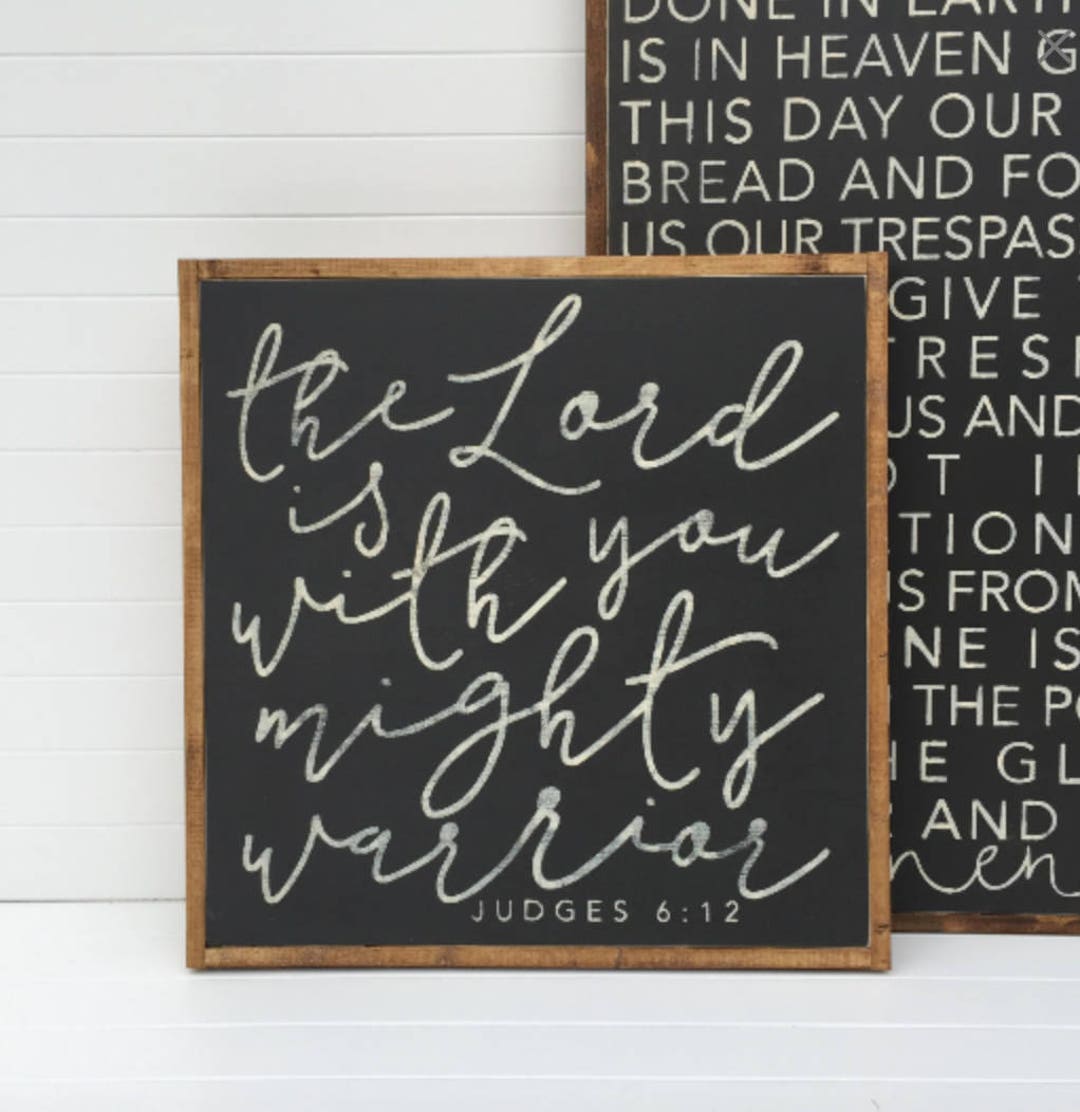 the Lord
is with you
mighty
warrior
JUDGES 6:12
DONE IN EARTH
IS IN HEAVEN G
THIS DAY OUR
BREAD AND FO
US OUR TRESPAS
GIVE
TRESP
US AND
OT I
TION
US FROM
NE IS
THE PO
HE GL
AND
men